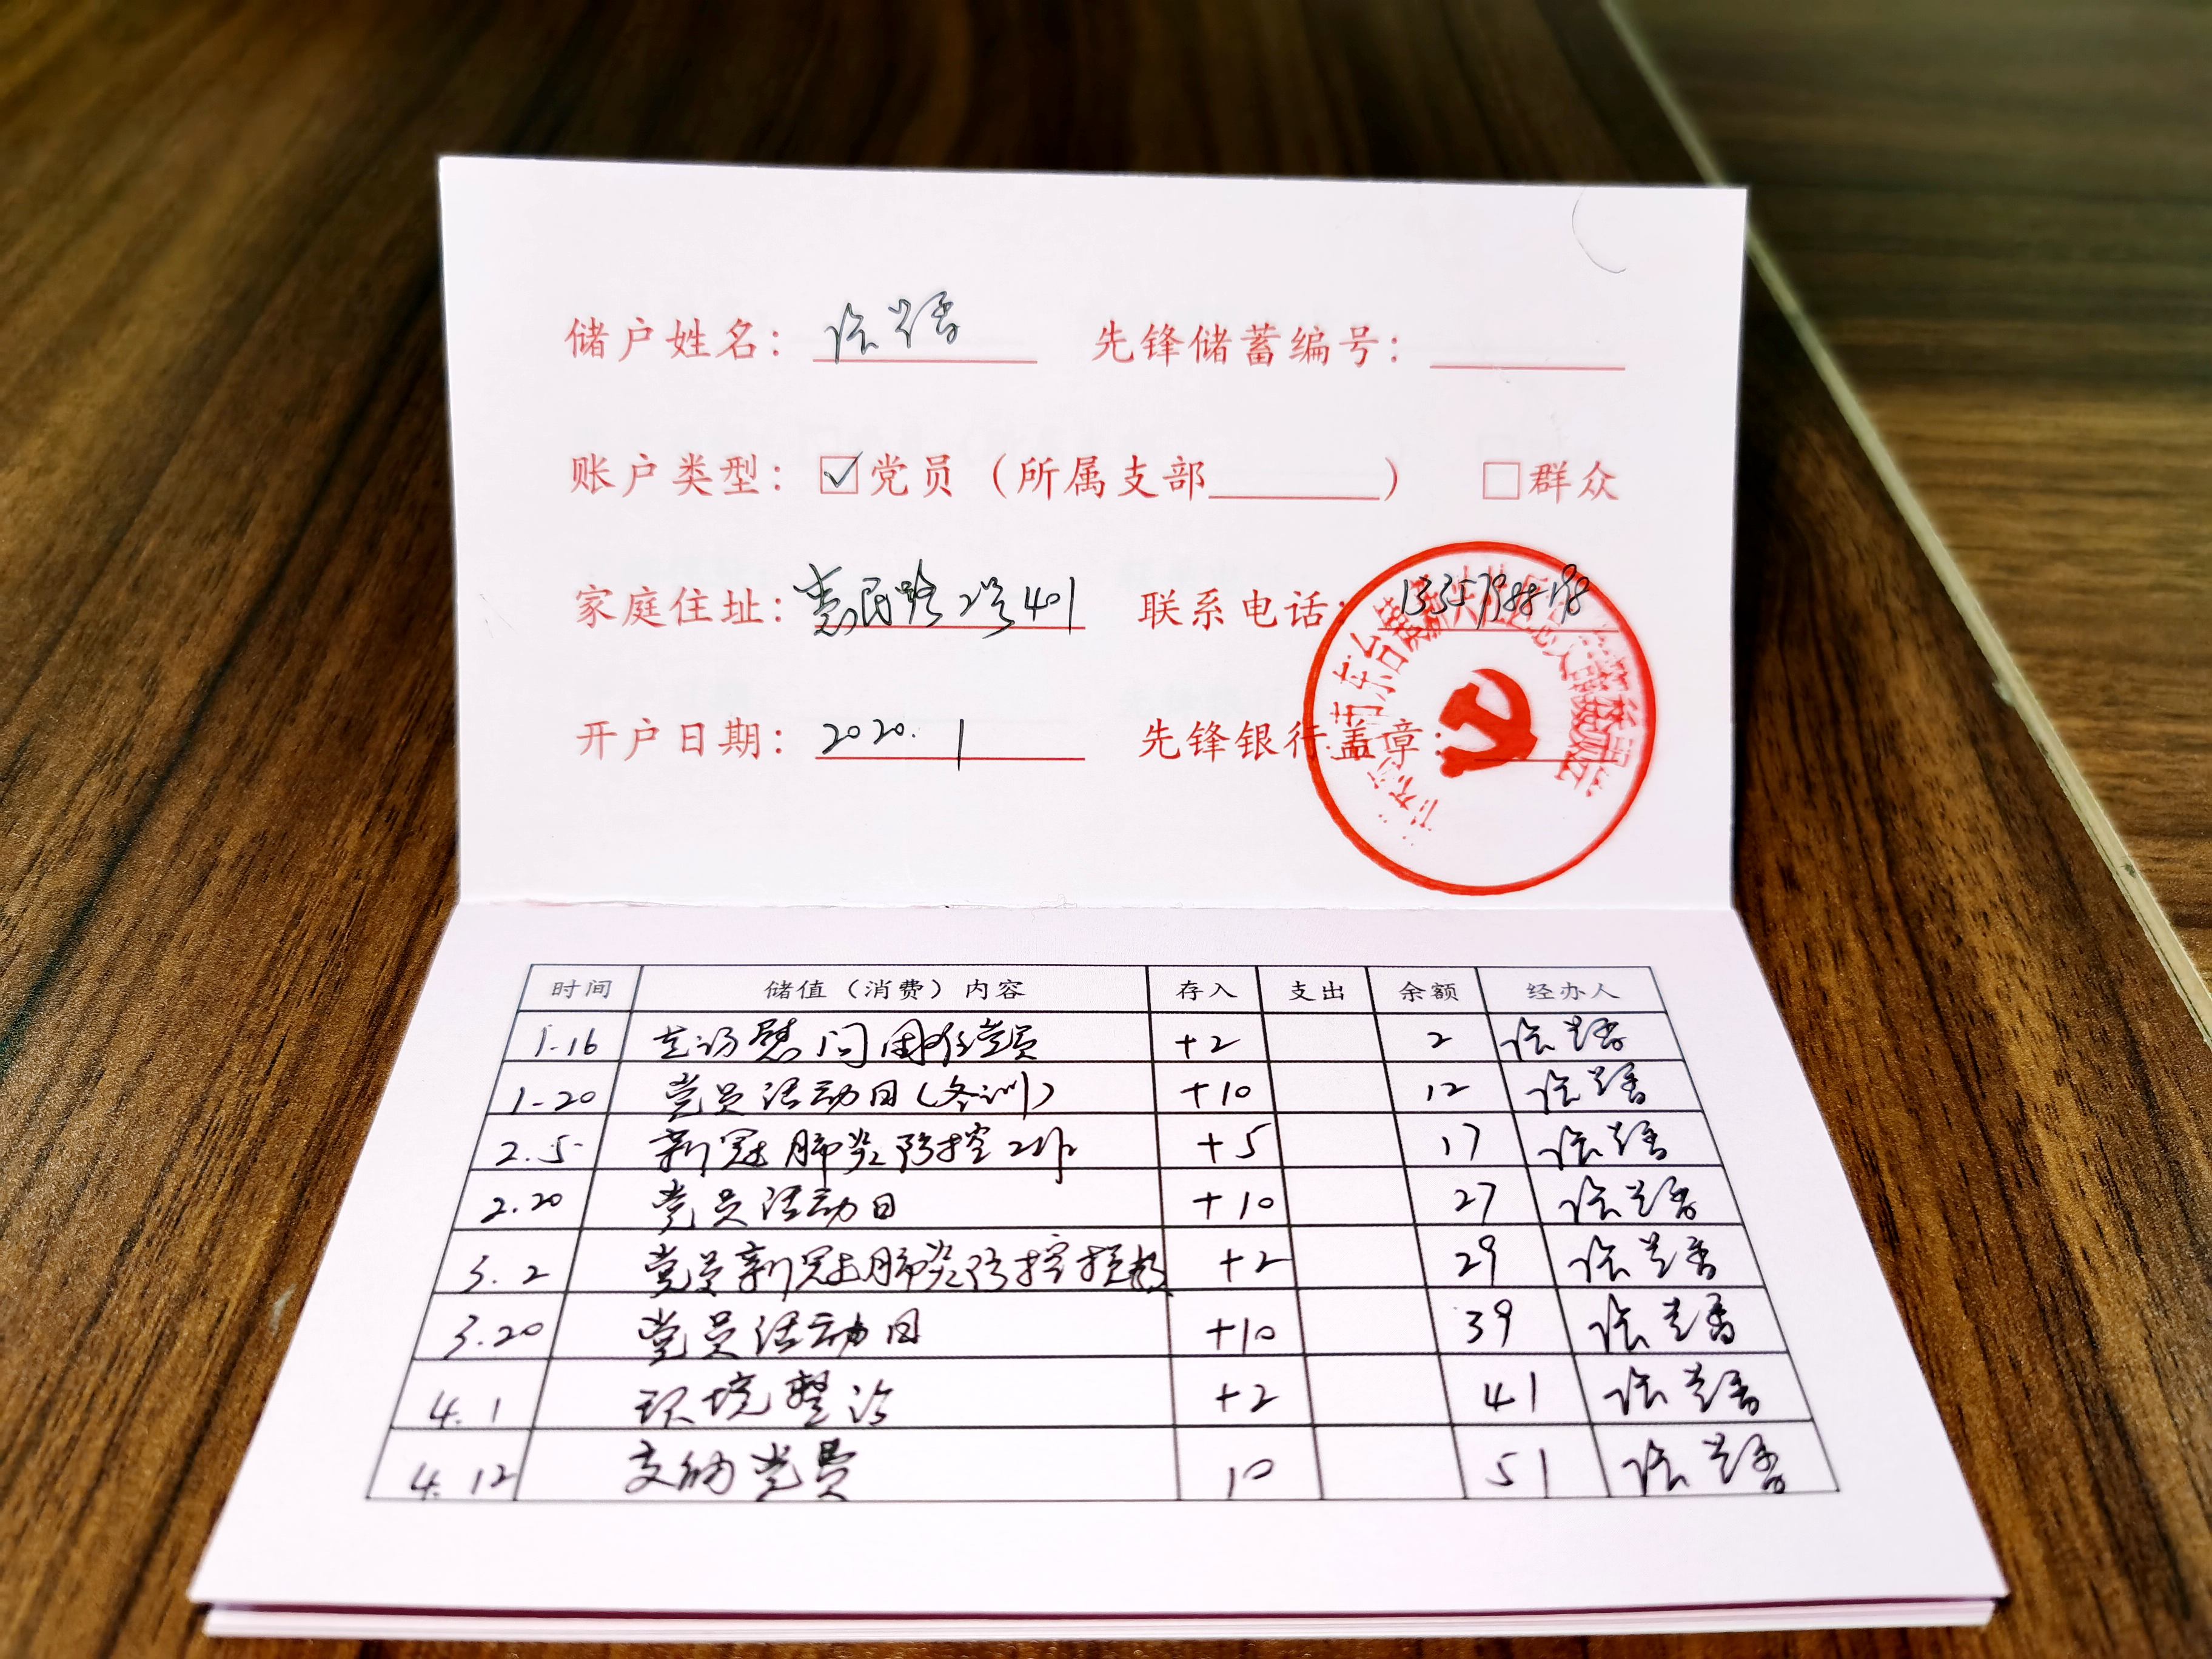 储户姓名： 先锋储蓄编号：
账户类型： ☑党员（所属支部 ） □群众
家庭住址：惠民路2号401 联系电话：
开户日期：2020.1 先锋银行盖章：
时间 储值（消费）内容 存入 支出 余额 经办人
1.16 走访慰问困难党员 +2 2
1-20 党员活动日（冬训） +10 12
2.5 新冠肺炎防控工作 +5 17
2.20 党员活动日 +10 27
3.2 党员新冠肺炎防控捐款 +2 29
3.20 党员活动日 +10 39
4.1 环境整治 +2 41
4.12 交纳党费 10 51